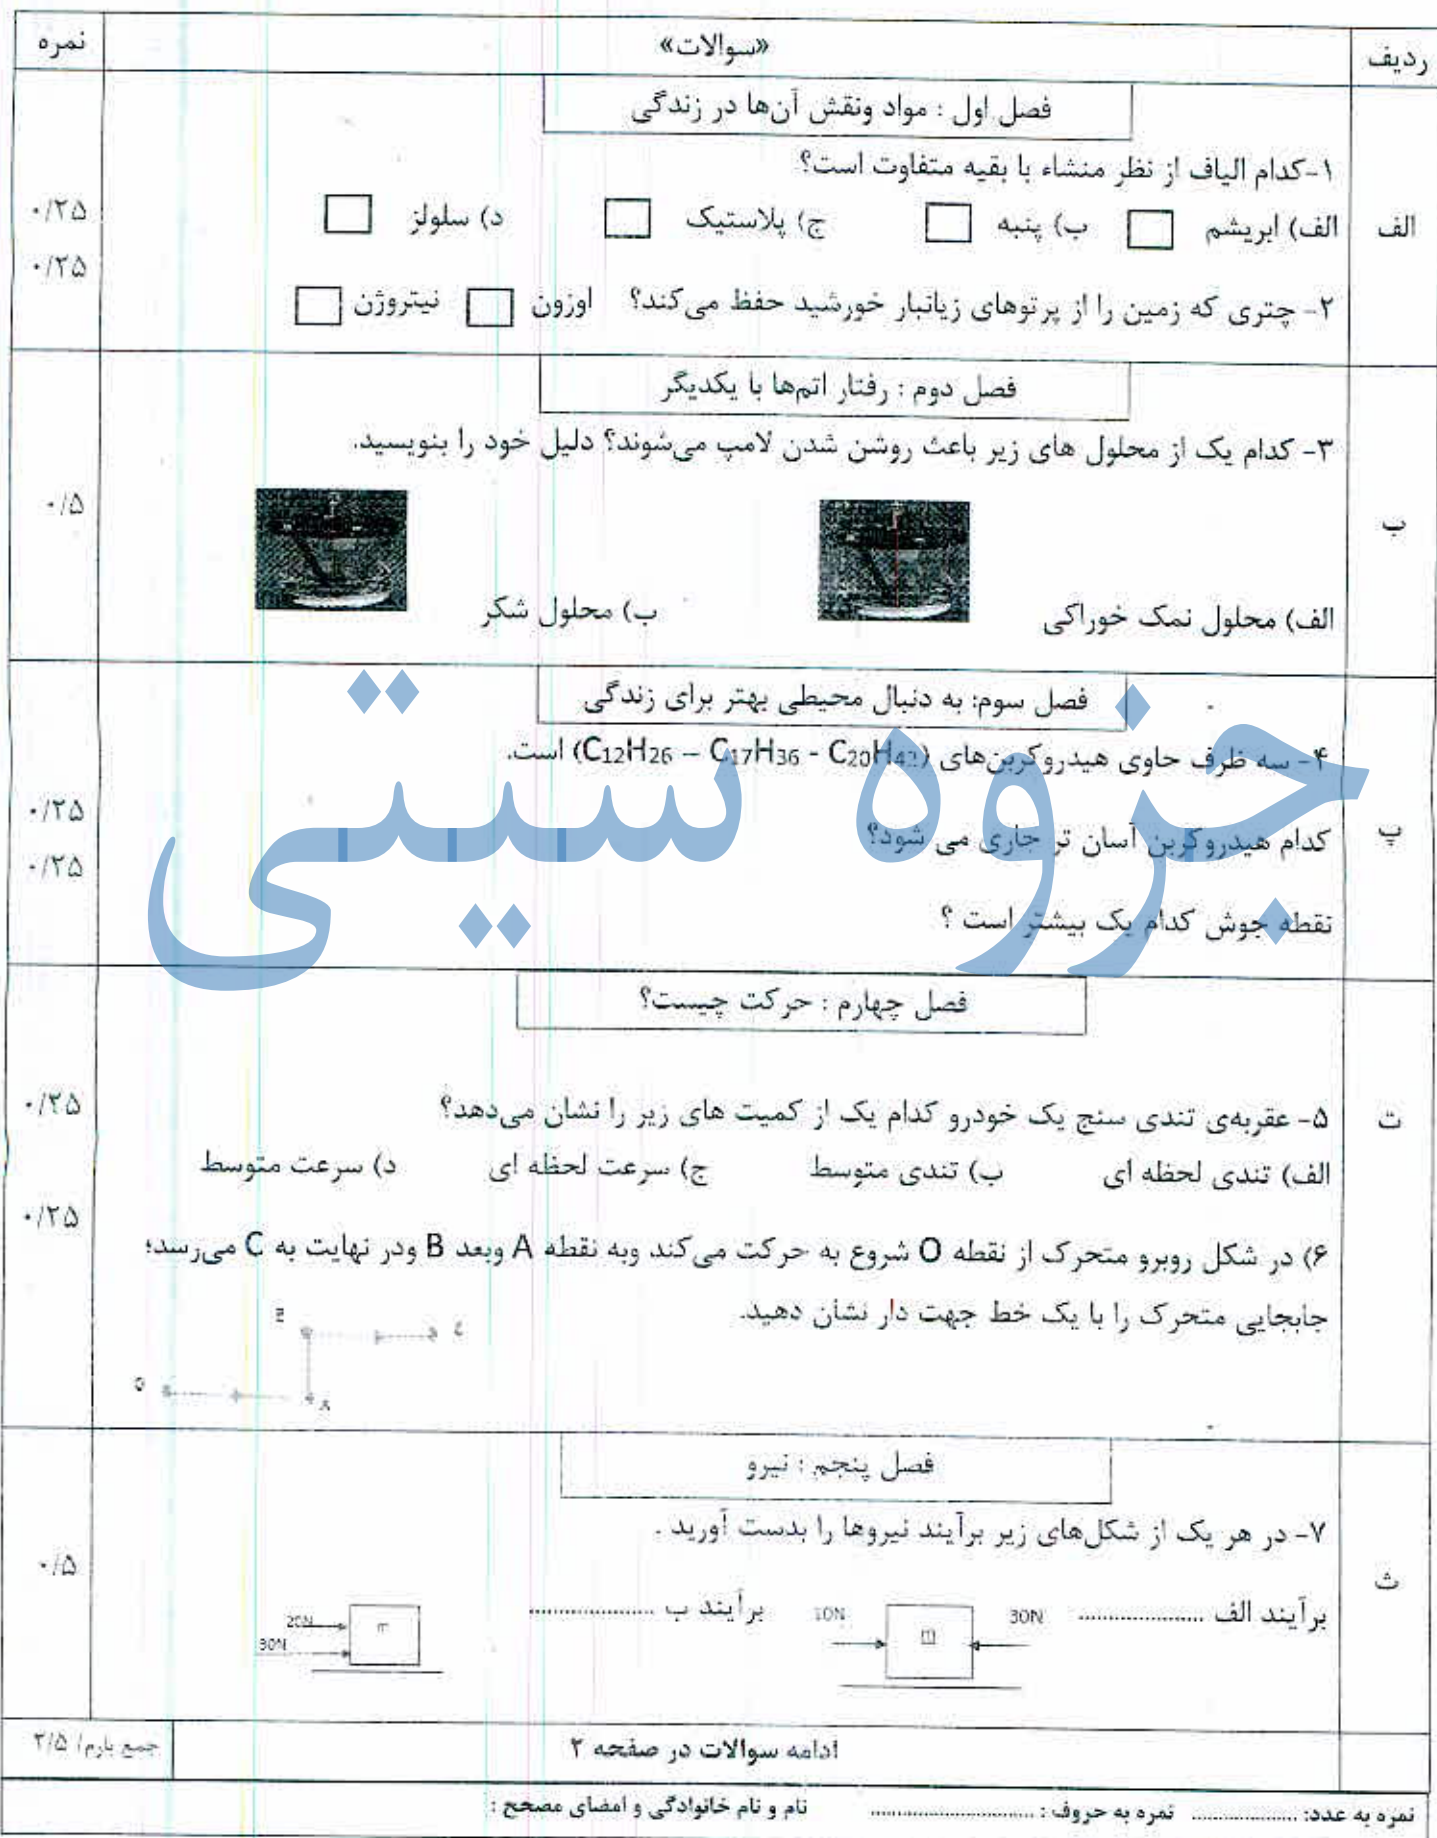 ردیف «سوالات» نمره
فصل اول : مواد ونقش آن‌ها در زندگی
۱-کدام الیاف از نظر منشاء با بقیه متفاوت است؟
الف الف) ابریشم ب) پنبه ج) پلاستیک د) سلولز ۰/۲۵
۰/۲۵
۲- چتری که زمین را از پرتوهای زیانبار خورشید حفظ می‌کند؟ اوزون نیتروژن
فصل دوم : رفتار اتم‌ها با یکدیگر
۳- کدام یک از محلول های زیر باعث روشن شدن لامپ می‌شوند؟ دلیل خود را بنویسید.
ب ۰/۵
الف) محلول نمک خوراکی ب) محلول شکر
فصل سوم: به دنبال محیطی بهتر برای زندگی
۴- سه ظرف حاوی هیدروکربن‌های (C12H26 – C17H36 - C20H42) است.
پ کدام هیدروکربن آسان تر جاری می شود؟ ۰/۲۵
۰/۲۵
نقطه جوش کدام یک بیشتر است ؟
جزوه سیتی
فصل چهارم : حرکت چیست؟
ت ۵- عقربه‌ی تندی سنج یک خودرو کدام یک از کمیت های زیر را نشان می‌دهد؟ ۰/۲۵
الف) تندی لحظه ای ب) تندی متوسط ج) سرعت لحظه ای د) سرعت متوسط
۰/۲۵
۶) در شکل روبرو متحرک از نقطه O شروع به حرکت می‌کند وبه نقطه A وبعد B ودر نهایت به C می‌رسد؛
جابجایی متحرک را با یک خط جهت دار نشان دهید.
B C
O A
فصل پنجم : نیرو
۷- در هر یک از شکل‌های زیر برآیند نیروها را بدست آورید .
ث ۰/۵
برآیند الف .................... 30N m 10N برآیند ب .................... m 20N
30N
ادامه سوالات در صفحه ۲ جمع بارم/ ۲/۵
نمره به عدد: .................... نمره به حروف : .............................. نام و نام خانوادگی و امضای مصحح :